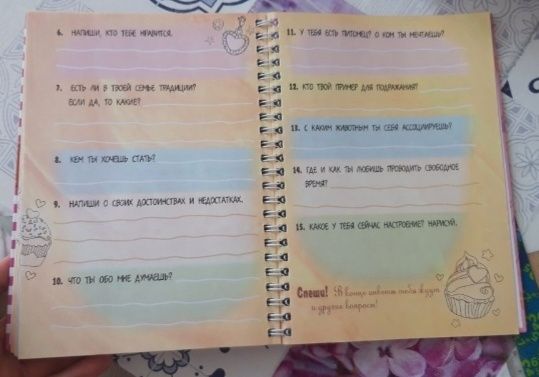 6. НАПИШИ, КТО ТЕБЕ НРАВИТСЯ.
7. ЕСТЬ ЛИ В ТВОЕЙ СЕМЬЕ ТРАДИЦИИ?
ЕСЛИ ДА, ТО КАКИЕ?
8. КЕМ ТЫ ХОЧЕШЬ СТАТЬ?
9. НАПИШИ О СВОИХ ДОСТОИНСТВАХ И НЕДОСТАТКАХ.
10. ЧТО ТЫ ОБО МНЕ ДУМАЕШЬ?
11. У ТЕБЯ ЕСТЬ ПИТОМЕЦ? О КОМ ТЫ МЕЧТАЕШЬ?
12. КТО ТВОЙ ПРИМЕР ДЛЯ ПОДРАЖАНИЯ?
13. С КАКИМ ЖИВОТНЫМ ТЫ СЕБЯ АССОЦИИРУЕШЬ?
14. ГДЕ И КАК ТЫ ЛЮБИШЬ ПРОВОДИТЬ СВОБОДНОЕ
ВРЕМЯ?
15. КАКОЕ У ТЕБЯ СЕЙЧАС НАСТРОЕНИЕ? НАРИСУЙ.
Спеши! В конце анкеты тебя ждут
и другие вопросы!